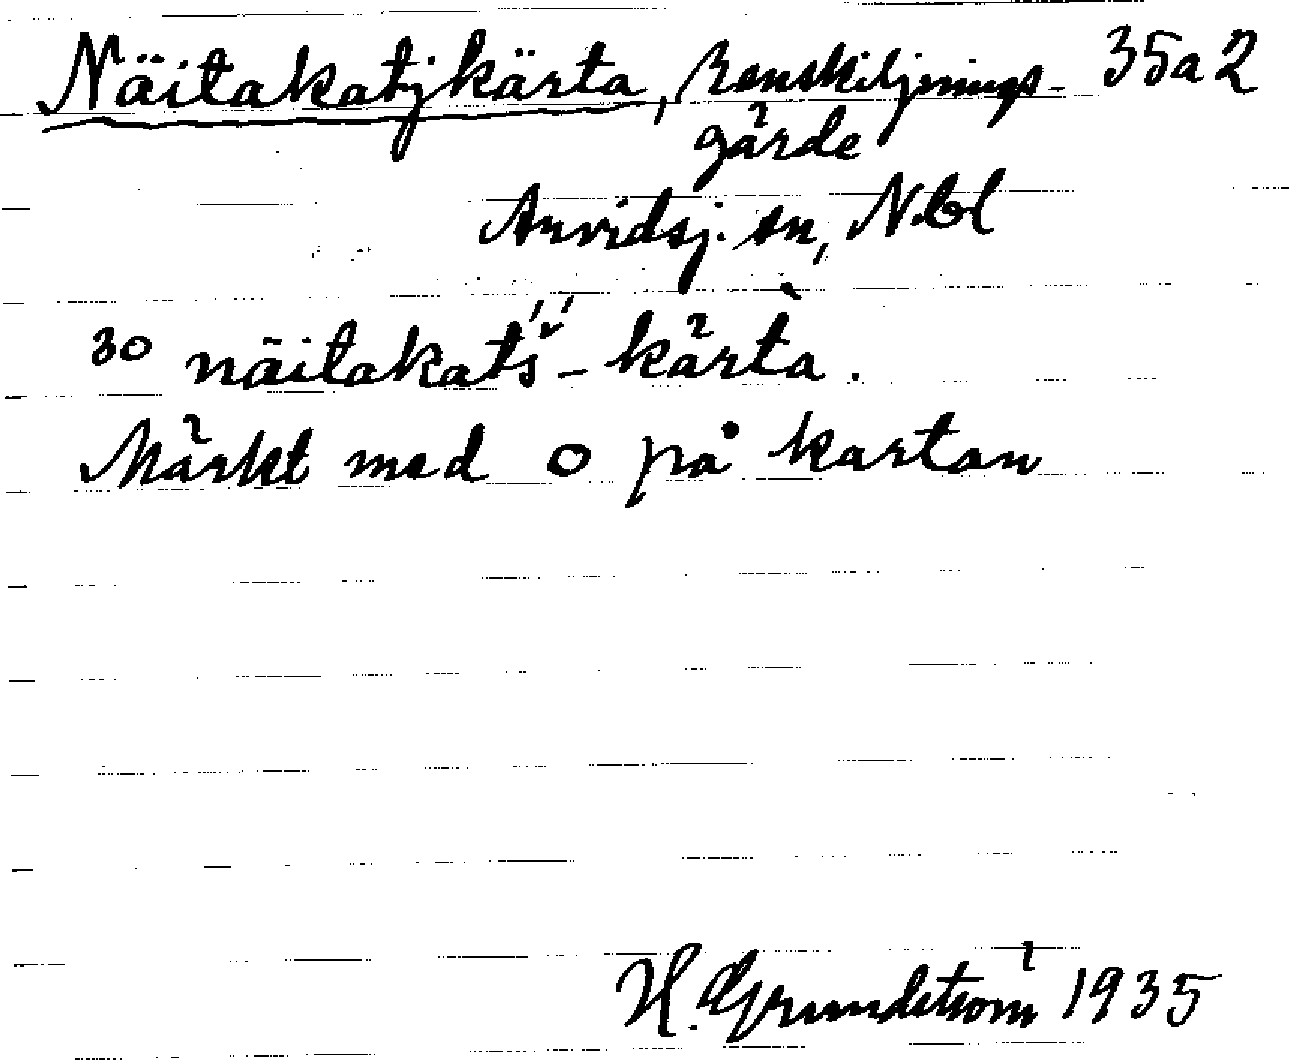 Näitakatjkärta, Renskiljnings- 35a2
gärde
Arvidsj. sn, Nbl
30 näitakat́š́-kärtà.
Märkt med o på kartan
H. Grundström 1935